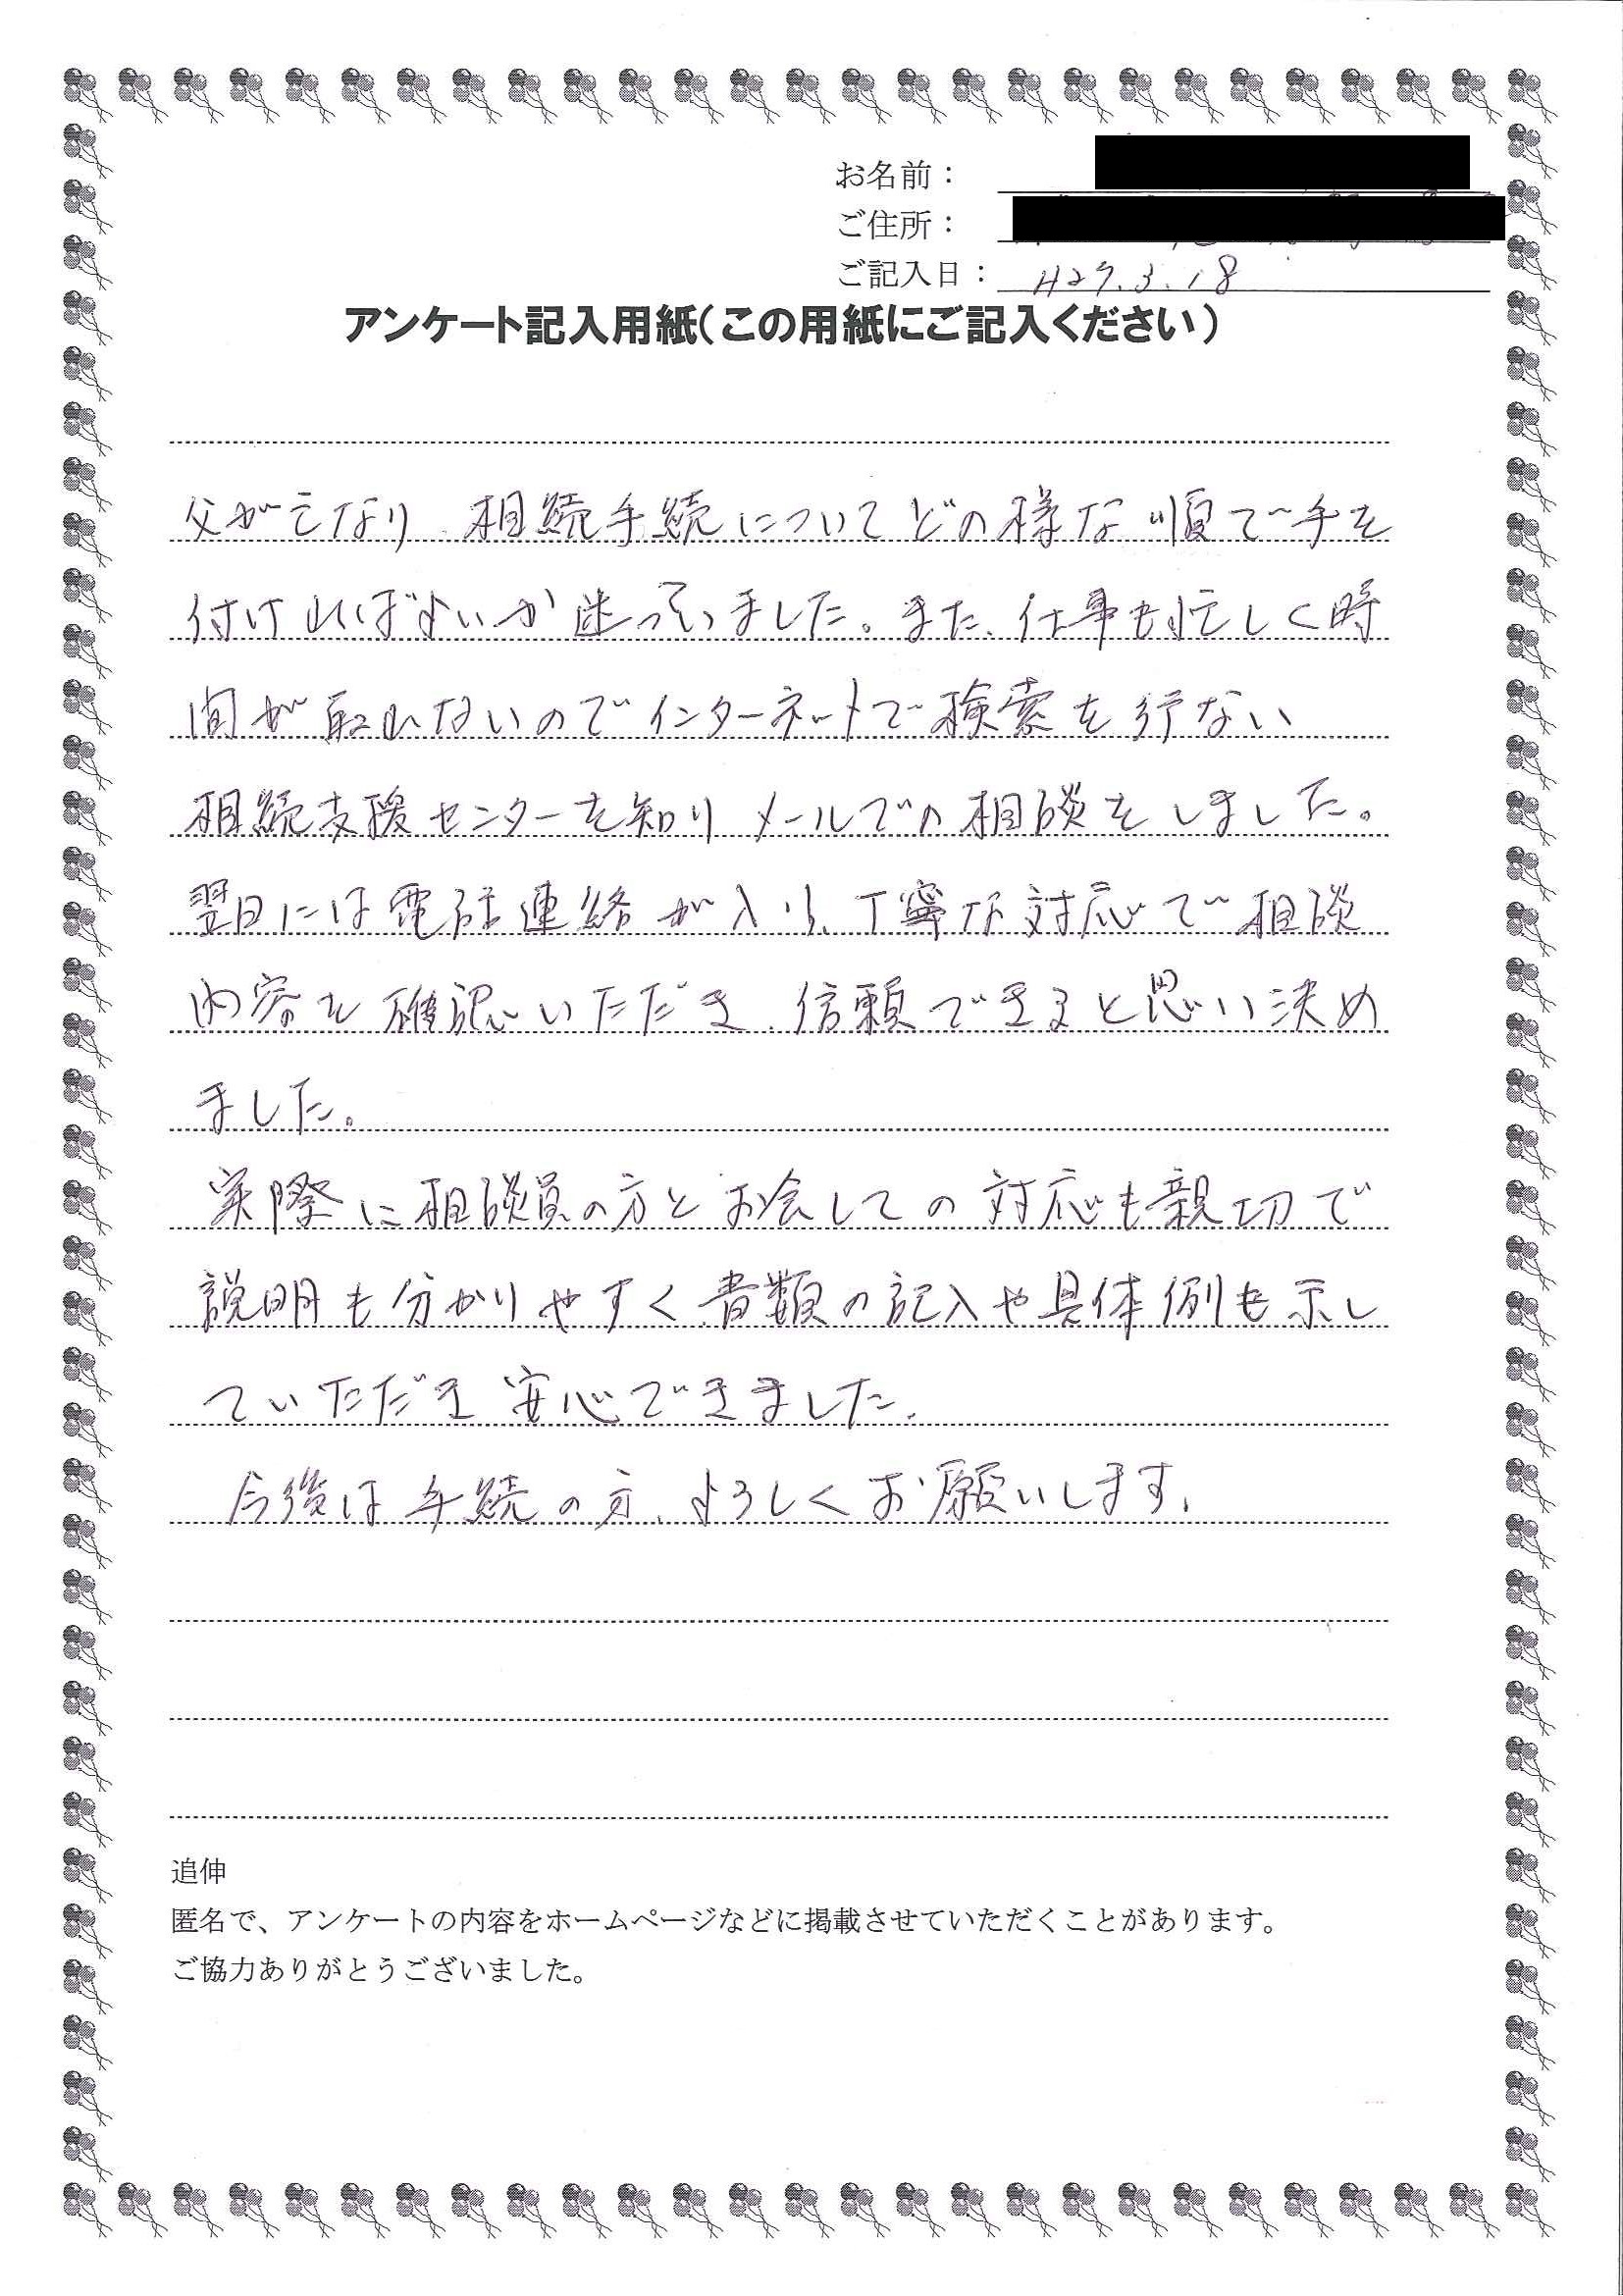 お名前：
ご住所：
ご記入日： H27.3.18
アンケート記入用紙（この用紙にご記入ください）
父が亡なり、相続手続についてどの様な順で手を
付ければよいか迷っていました。また、仕事も忙しく時
間が取れないのでインターネットで検索を行ない
相続支援センターを知りメールでの相談をしました。
翌日には電話連絡が入り、丁寧な対応で相談
内容を確認いただき、信頼できると思い決め
ました。
実際に相談員の方とお会しての対応も親切で
説明も分かりやすく書類の記入や具体例も示し
ていただき安心できました。
今後は手続の方、よろしくお願いします。
追伸
匿名で、アンケートの内容をホームページなどに掲載させていただくことがあります。
ご協力ありがとうございました。